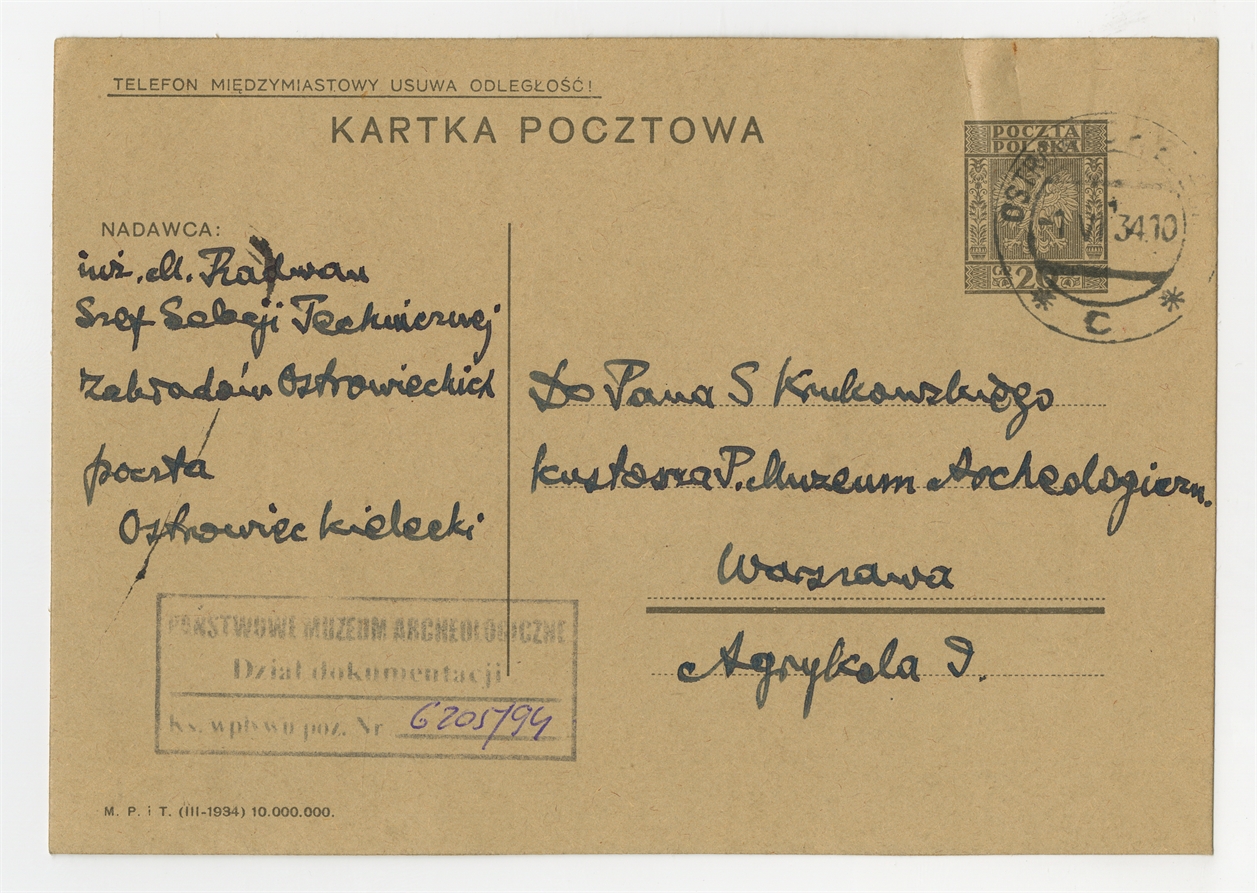 TELEFON MIĘDZYMIASTOWY USUWA ODLEGŁOŚĆ!
KARTKA POCZTOWA
POCZTA
POLSKA
GR 20
34.10
C
NADAWCA:
inż. M. Radwan
Szef Sekcji Technicznej
Zakładów Ostrowieckich
poczta
Ostrowiec Kielecki
Do Pana S Krukowskiego
Kustosza P. Muzeum Archeologiczn.
Warszawa
Agrykola
PAŃSTWOWE MUZEUM ARCHEOLOGICZNE
Dział dokumentacji
Ks. wpływu poz. Nr 6205/94
M. P. i T. (III-1934) 10.000.000.